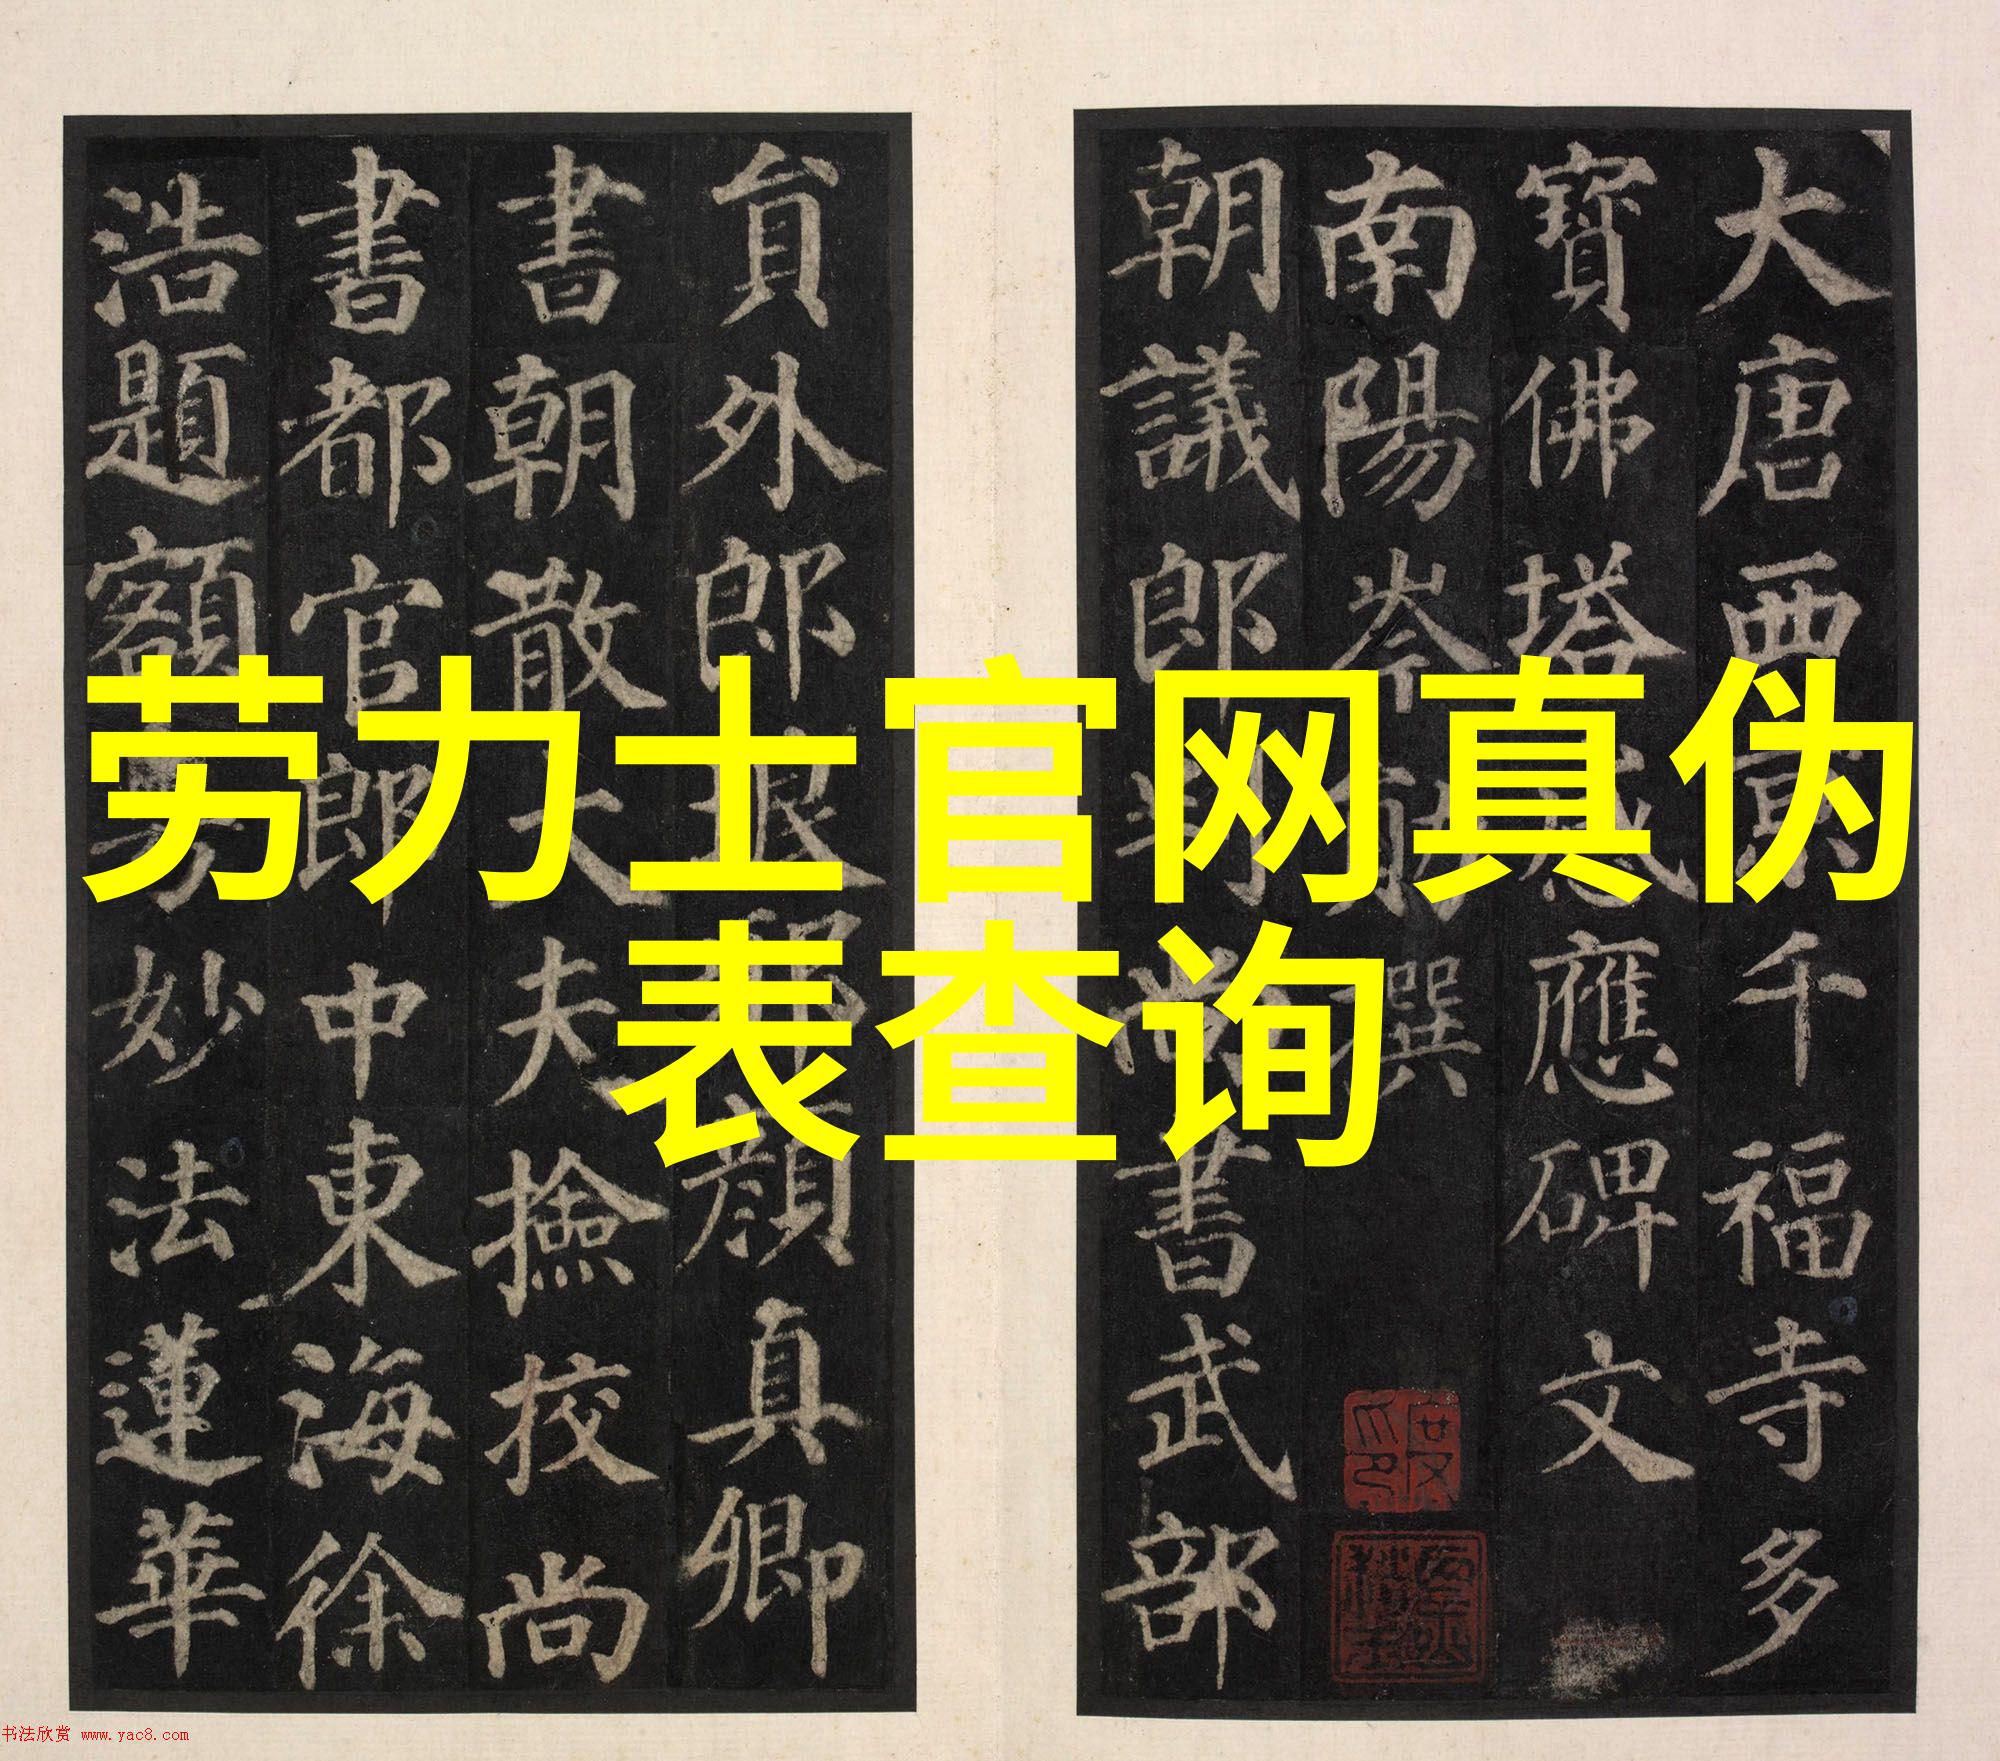 劳力士官网真伪
表查询
大唐西京千福寺多
寶佛塔感應碑文
南陽岑勛撰
朝議郎判尚書武部
貟外郎琅邪顏真卿
書朝散大夫撿校尚
書都官郎中東海徐
浩題額妙法蓮華
书法欣赏 www.yac8.com